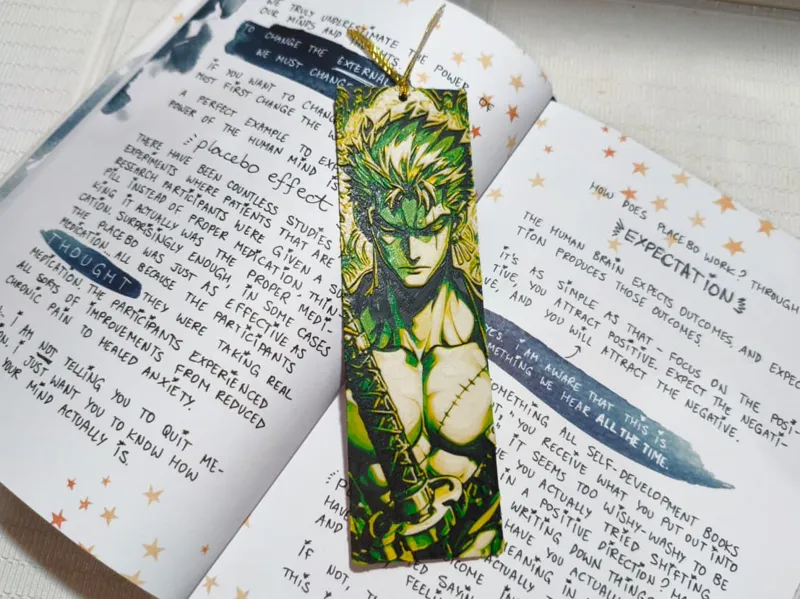 WE TRULY UNDERESTIMATE THE POWER OF
OUR MINDS AND
TO CHANGE THE EXTERNAL
WE MUST CHANGE
IF YOU WANT TO CHANGE
MOST FIRST CHANGE THE
A PERFECT EXAMPLE TO
POWER OF THE HUMAN MIND IS
placebo effect
THERE HAVE BEEN COUNTLESS STUDIES
EXPERIMENTS WHERE PATIENTS THAT ARE
RESEARCH PARTICIPANTS WERE GIVEN A
PILL INSTEAD OF PROPER MEDICATION, THIN-
KING IT ACTUALLY WAS THE PROPER MEDI-
CATION. SURPRISINGLY ENOUGH, IN SOME CASES
THE PLACEBO WAS JUST AS EFFECTIVE AS
MEDICATION. ALL BECAUSE THE PARTICIPANTS
THOUGHT THEY WERE TAKING REAL
MEDICATION. THE PARTICIPANTS EXPERIENCED
ALL SORTS OF IMPROVEMENTS FROM REDUCED
CHRONIC PAIN TO HEALED ANXIETY.
I AM NOT TELLING YOU TO QUIT ME-
I JUST WANT YOU TO KNOW HOW
YOUR MIND ACTUALLY IS.
HOW DOES PLACEBO WORK? THROUGH
EXPECTATION
THE HUMAN BRAIN EXPECTS OUTCOMES, AND
TION PRODUCES THOSE OUTCOMES.
IT'S AS SIMPLE AS THAT - FOCUS ON THE POSI-
TIVE, YOU ATTRACT POSITIVE. EXPECT THE NEGATI-
VE, AND YOU WILL ATTRACT THE NEGATIVE.
YES. I AM AWARE THAT THIS IS
SOMETHING WE HEAR ALL THE TIME.
SOMETHING ALL SELF-DEVELOPMENT BOOKS
"YOU RECEIVE WHAT YOU PUT OUT INTO
IT SEEMS TOO WISHY-WASHY TO BE
YOU ACTUALLY TRIED SHIFTING
IN A POSITIVE DIRECTION?
WRITING DOWN THINGS
HAVE YOU ACTUALLY
MEANING
AND
SAYING
IF
NOT,
FEELING
THIS